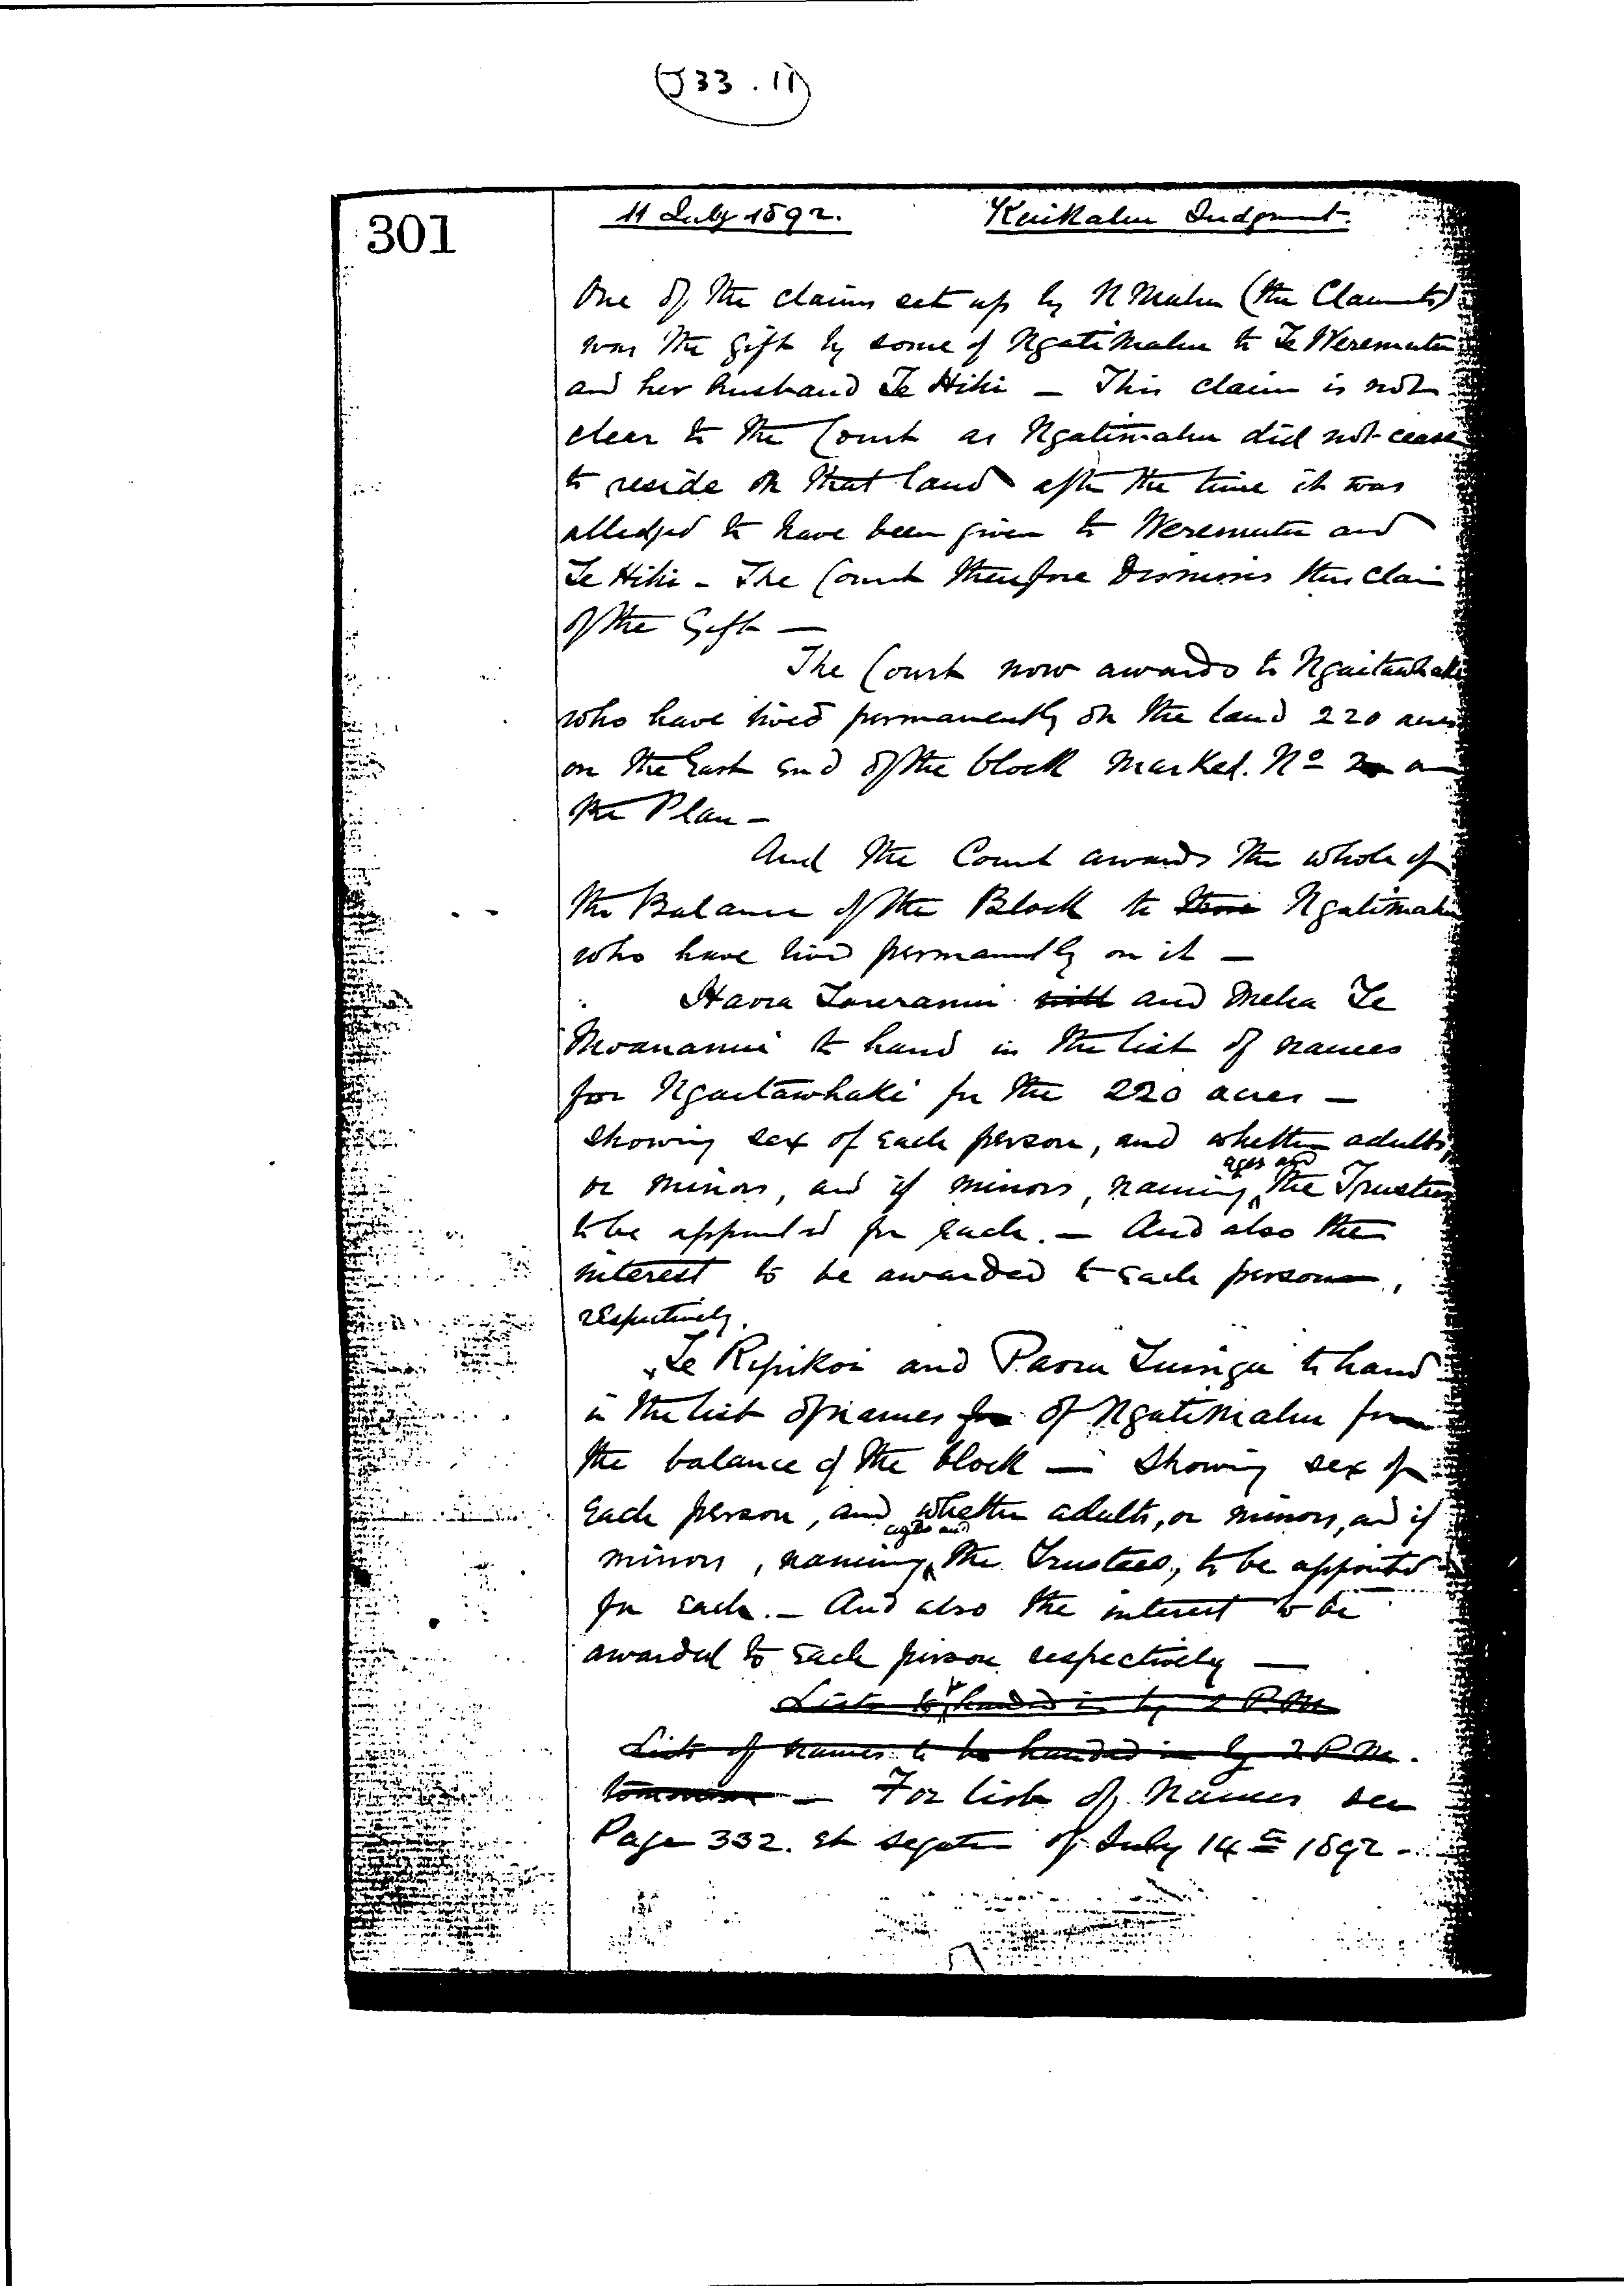 (J33.11)
301
11 July 1892. Kaikahu Judgment.
One of the claims set up by N Mahu (the Claimants)
was the gift by some of Ngatimahu to Te Weremutu
and her husband Te Hihi — This claim is not
clear to the Court as Ngatimahu did not cease
to reside on that land after the time it was
alledged to have been given to Weremutu and
Te Hihi – The Court therefore Dismisses this claim
of the Gift —
The Court now awards to Ngaitawhaki
who have lived permanently on the land 220 acres
on the East End of the block marked. No 2 on
the Plan –
And the Court awards the whole of
the Balance of the Block to Ngatimahu
who have lived permanently on it —
Haora and Meha Te
Moananui to hand in the list of names
for Ngaitawhaki for the 220 acres —
showing sex of each person, and whether adults,
or minors, and if minors, naming ages and the Trustees
to be appointed for each. — And also the
interest to be awarded to each person,
respectively.
Te Ropikoi and Paora to hand
in the list of names for of Ngatimahu for
the balance of the block — showing sex of
Each person, and whether adults, or minors, and if
minors, naming ages and the Trustees, to be appointed
for each. – And also the interest to be
awarded to each person respectively —
Lists to be handed in by 2 P.M.
Lists of names to be handed in by 2 P.M.
tomorrow — For list of Names see
Page 332. et seqtn of July 14th 1892 –